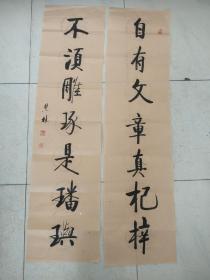 自有文章真杞梓
不須雕琢是璠璵